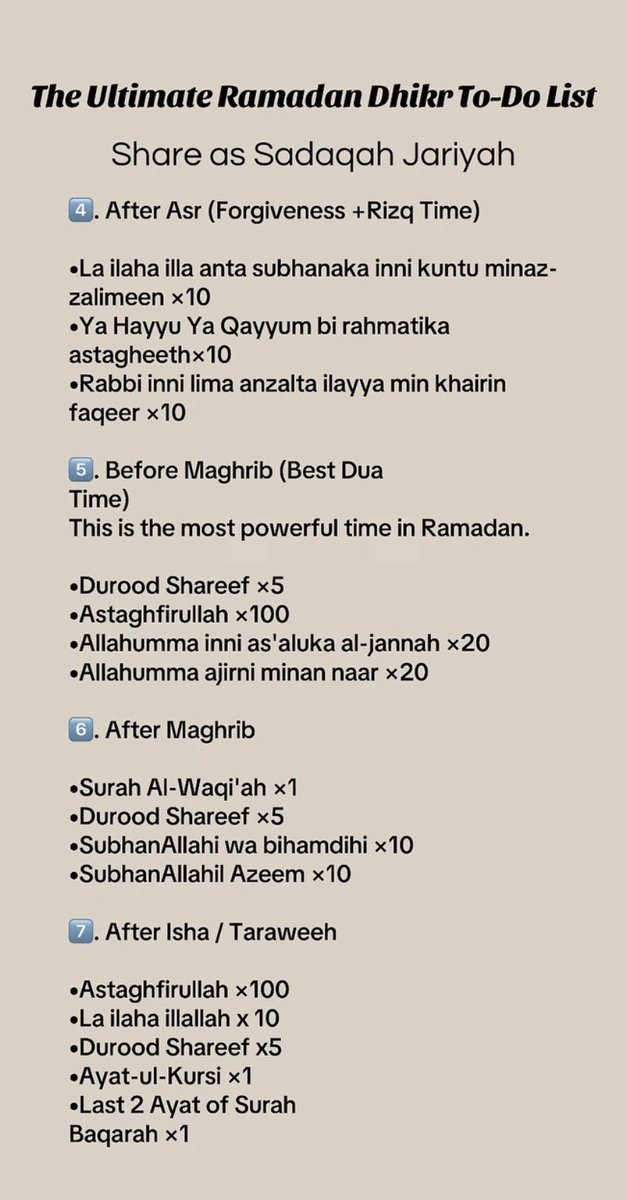 The Ultimate Ramadan Dhikr To-Do List
Share as Sadaqah Jariyah
4️⃣. After Asr (Forgiveness +Rizq Time)
•La ilaha illa anta subhanaka inni kuntu minaz-
zalimeen ×10
•Ya Hayyu Ya Qayyum bi rahmatika
astagheeth×10
•Rabbi inni lima anzalta ilayya min khairin
faqeer ×10
5️⃣. Before Maghrib (Best Dua
Time)
This is the most powerful time in Ramadan.
•Durood Shareef ×5
•Astaghfirullah ×100
•Allahumma inni as'aluka al-jannah ×20
•Allahumma ajirni minan naar ×20
6️⃣. After Maghrib
•Surah Al-Waqi'ah ×1
•Durood Shareef ×5
•SubhanAllahi wa bihamdihi ×10
•SubhanAllahil Azeem ×10
7️⃣. After Isha / Taraweeh
•Astaghfirullah ×100
•La ilaha illallah x 10
•Durood Shareef x5
•Ayat-ul-Kursi ×1
•Last 2 Ayat of Surah
Baqarah ×1